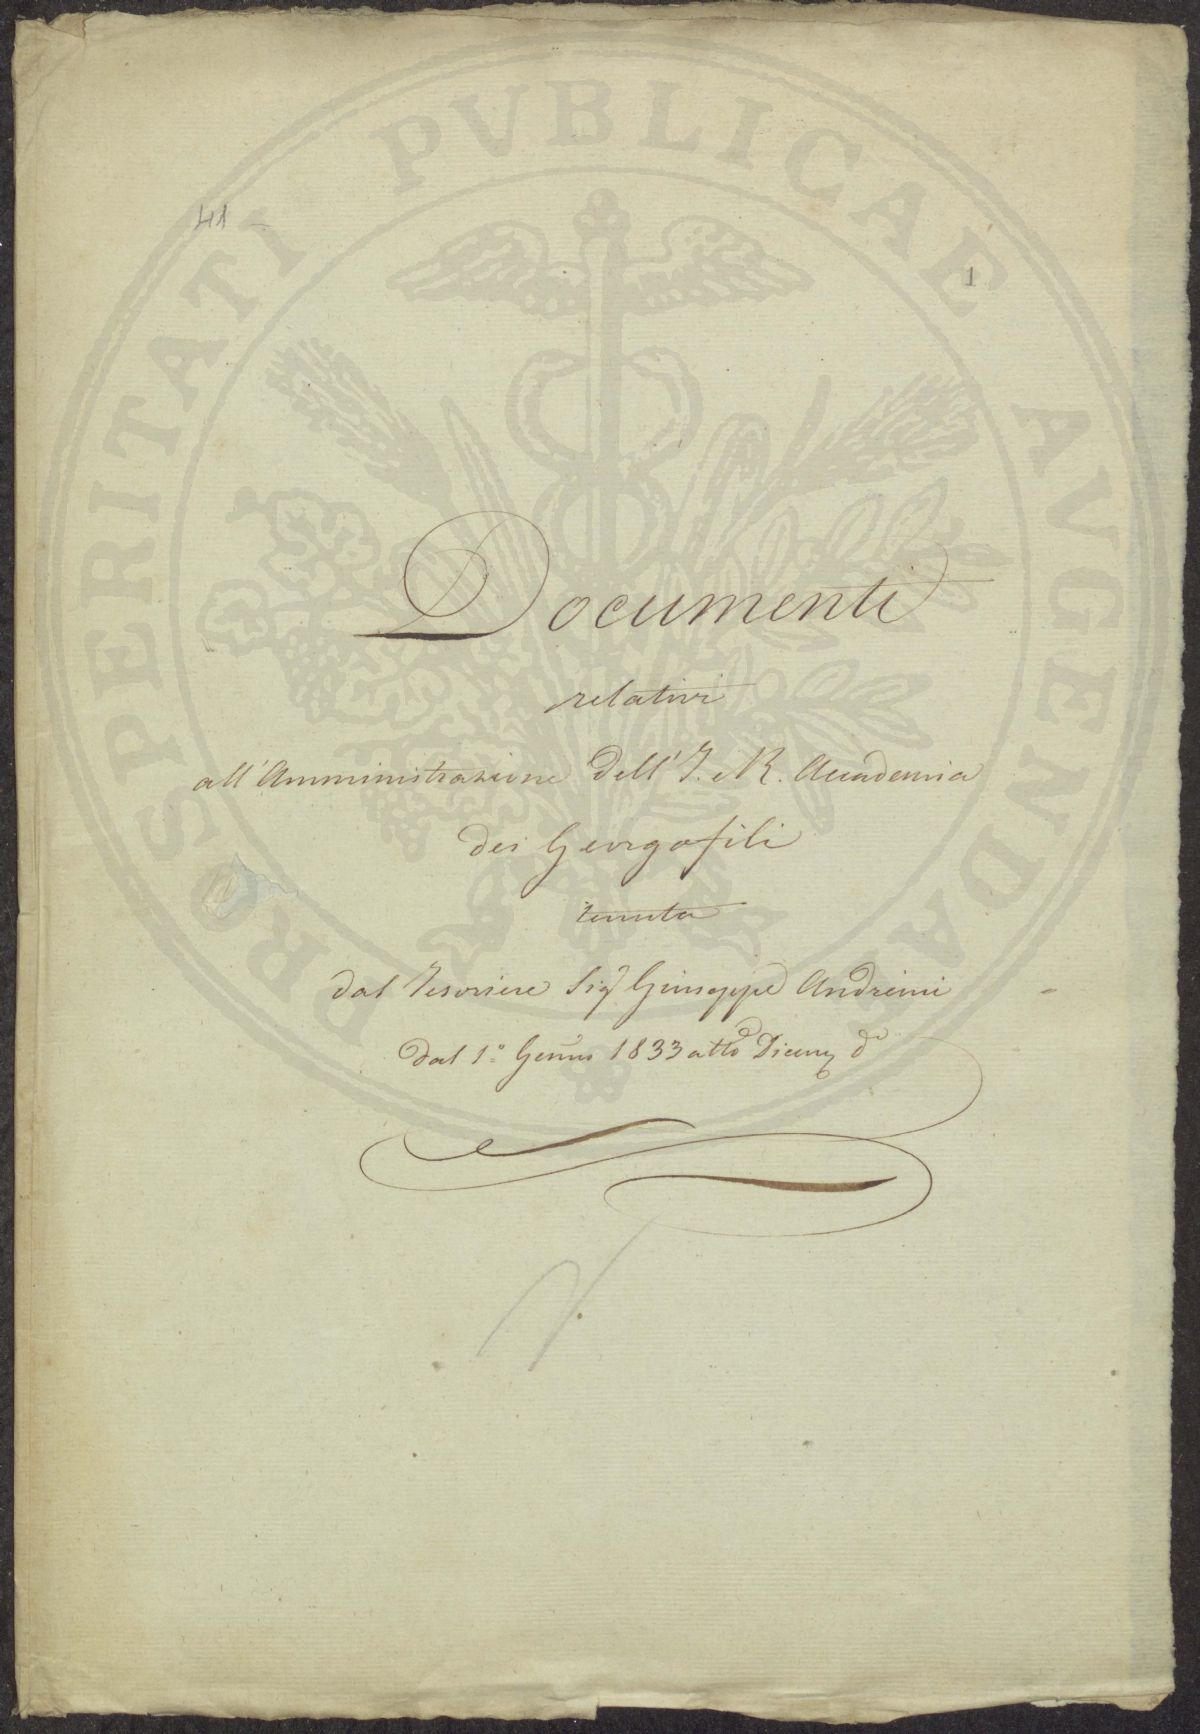 PROSPERITATI PVBLICAE AVGENDAE
41
1
Documenti
relativi
all'Amministrazione dell'I. e R. Accademia
dei Georgofili
tenuta
dal Tesoriere Sigr Giuseppe Andreini
dal 1° Genno 1833 a tto Dicem